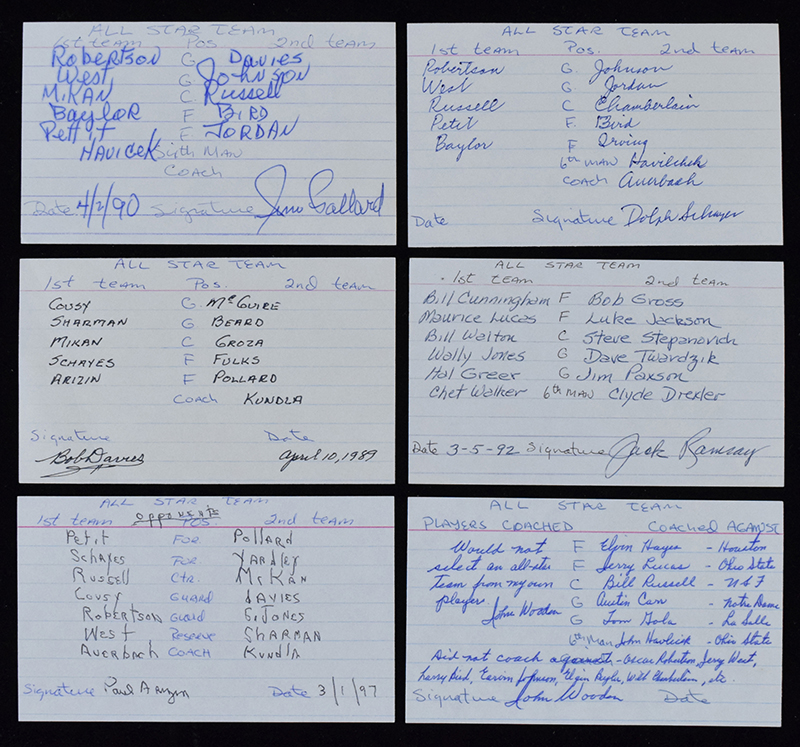 ALL STAR TEAM
1st team Pos 2nd team
Robertson G Davies
West, G Johnson
MiKAN C Russell
Baylor F Bird
Pettit F JORDAN
HAVICEK Sixth Man
COACH
Date 4/2/90 Signature
ALL STAR TEAM
1st team Pos. 2nd team
Robertson G. Johnson
West G. Jordan
Russell C Chamberlain
Petit F. Bird
Baylor F Irving
6th man Havilchek
COACH Auerbach
Date Signature Dolph Schayes
ALL STAR TEAM
1st team Pos. 2nd team
COUSY G. McGUIRE
SHARMAN G BEARD
MIKAN C GROZA
SCHAYES F FULKS
ARIZIN F POLLARD
COACH KUNDLA
Signature Date
Bob Davies April 10, 1989
ALL STAR TEAM
1st team 2nd team
Bill Cunningham F Bob Gross
Maurice Lucas F Luke Jackson
Bill Walton C Steve Stepanovich
Wally Jones G Dave Twardzik
Hal Greer G Jim Paxson
Chet Walker 6th man Clyde Drexler
Date 3-5-92 Signature Jack Ramsay
ALL STAR TEAM
opponents
1st team POS 2nd team
Petit FOR. Pollard
Schayes FOR. YARdley
Russell CTR. MiKAN
Cousy GUARD DAVIES
Robertson GUARD S. JONES
West Reserve SHARMAN
Auerbach COACH Kundla
Signature Paul Arizin Date 3/1/97
ALL STAR TEAM
PLAYERS COACHED COACHED AGAINST
Would not F Elvin Hayes - Houston
select an all-star F Jerry Lucas - Ohio State
team from my own C Bill Russell - USF
player G Austin Carr - Notre Dame
John Wooden G Tom Gola - La Salle
6th Man John Havlicek - Ohio State
Did not coach against - Oscar Robertson, Jerry West,
Larry Bird, Earvin Johnson, Elgin Baylor, Wilt Chamberlain, etc.
Signature John Wooden Date